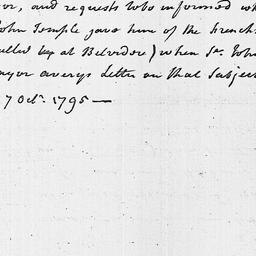 or, and requests to be informed wh
John Temple gave him of the french
ulled up at Belvidere) when Sr. John
mayor averys Letter on that Subjec
7 Octr. 1795 —